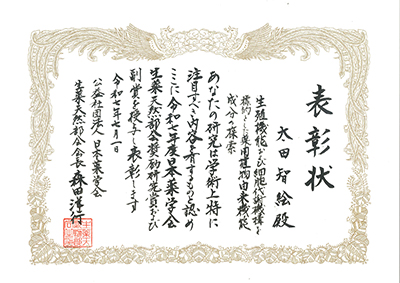 表彰状
太田智絵殿
生殖機能および細胞代謝機構を
標的とした薬用植物由来機能
成分の探索
あなたの研究は学術上特に
注目すべき内容を有するものと認め
ここに令和七年度日本薬学会
生薬天然物部会奨励研究賞および
副賞を授与し表彰します
令和七年七月一日
公益社団法人日本薬学会
生薬天然物部会長 森田洋行